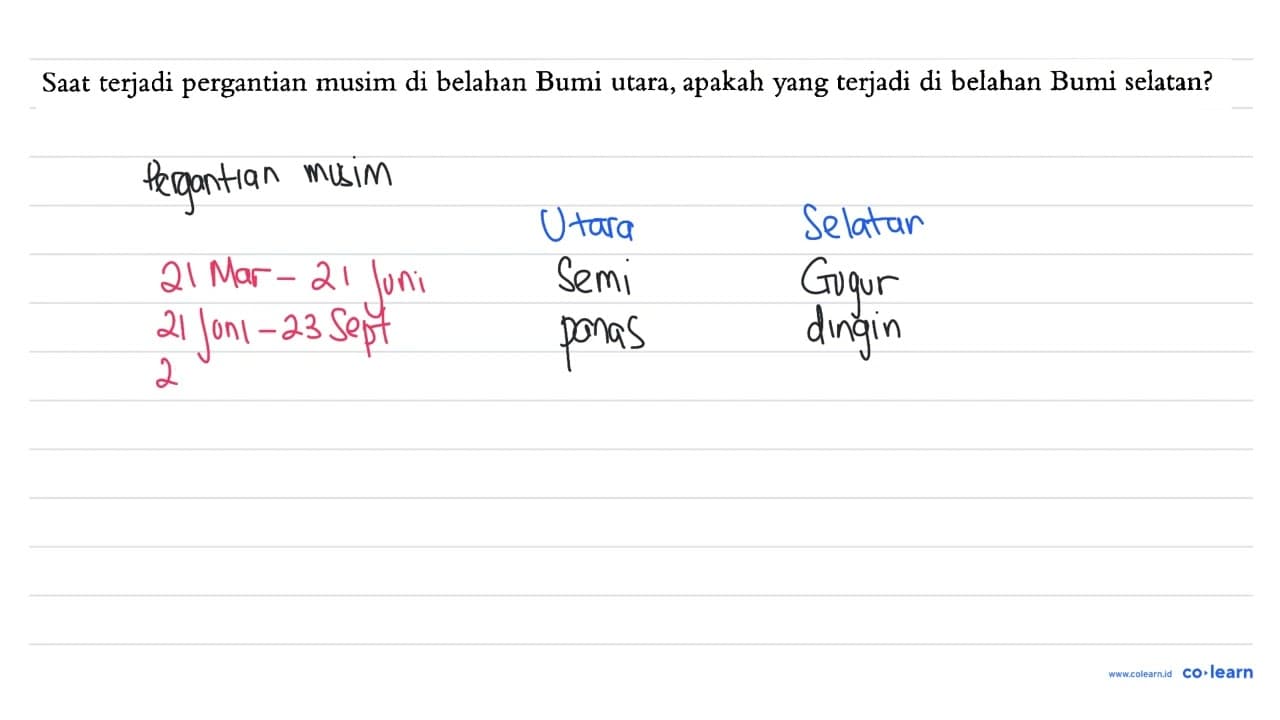 Saat terjadi pergantian musim di belahan Bumi utara, apakah yang terjadi di belahan Bumi selatan?
Pergantian musim
Utara Selatan
21 Mar - 21 Juni Semi Gugur
21 Juni - 23 Sept panas dingin
2
www.colearn.id co·learn